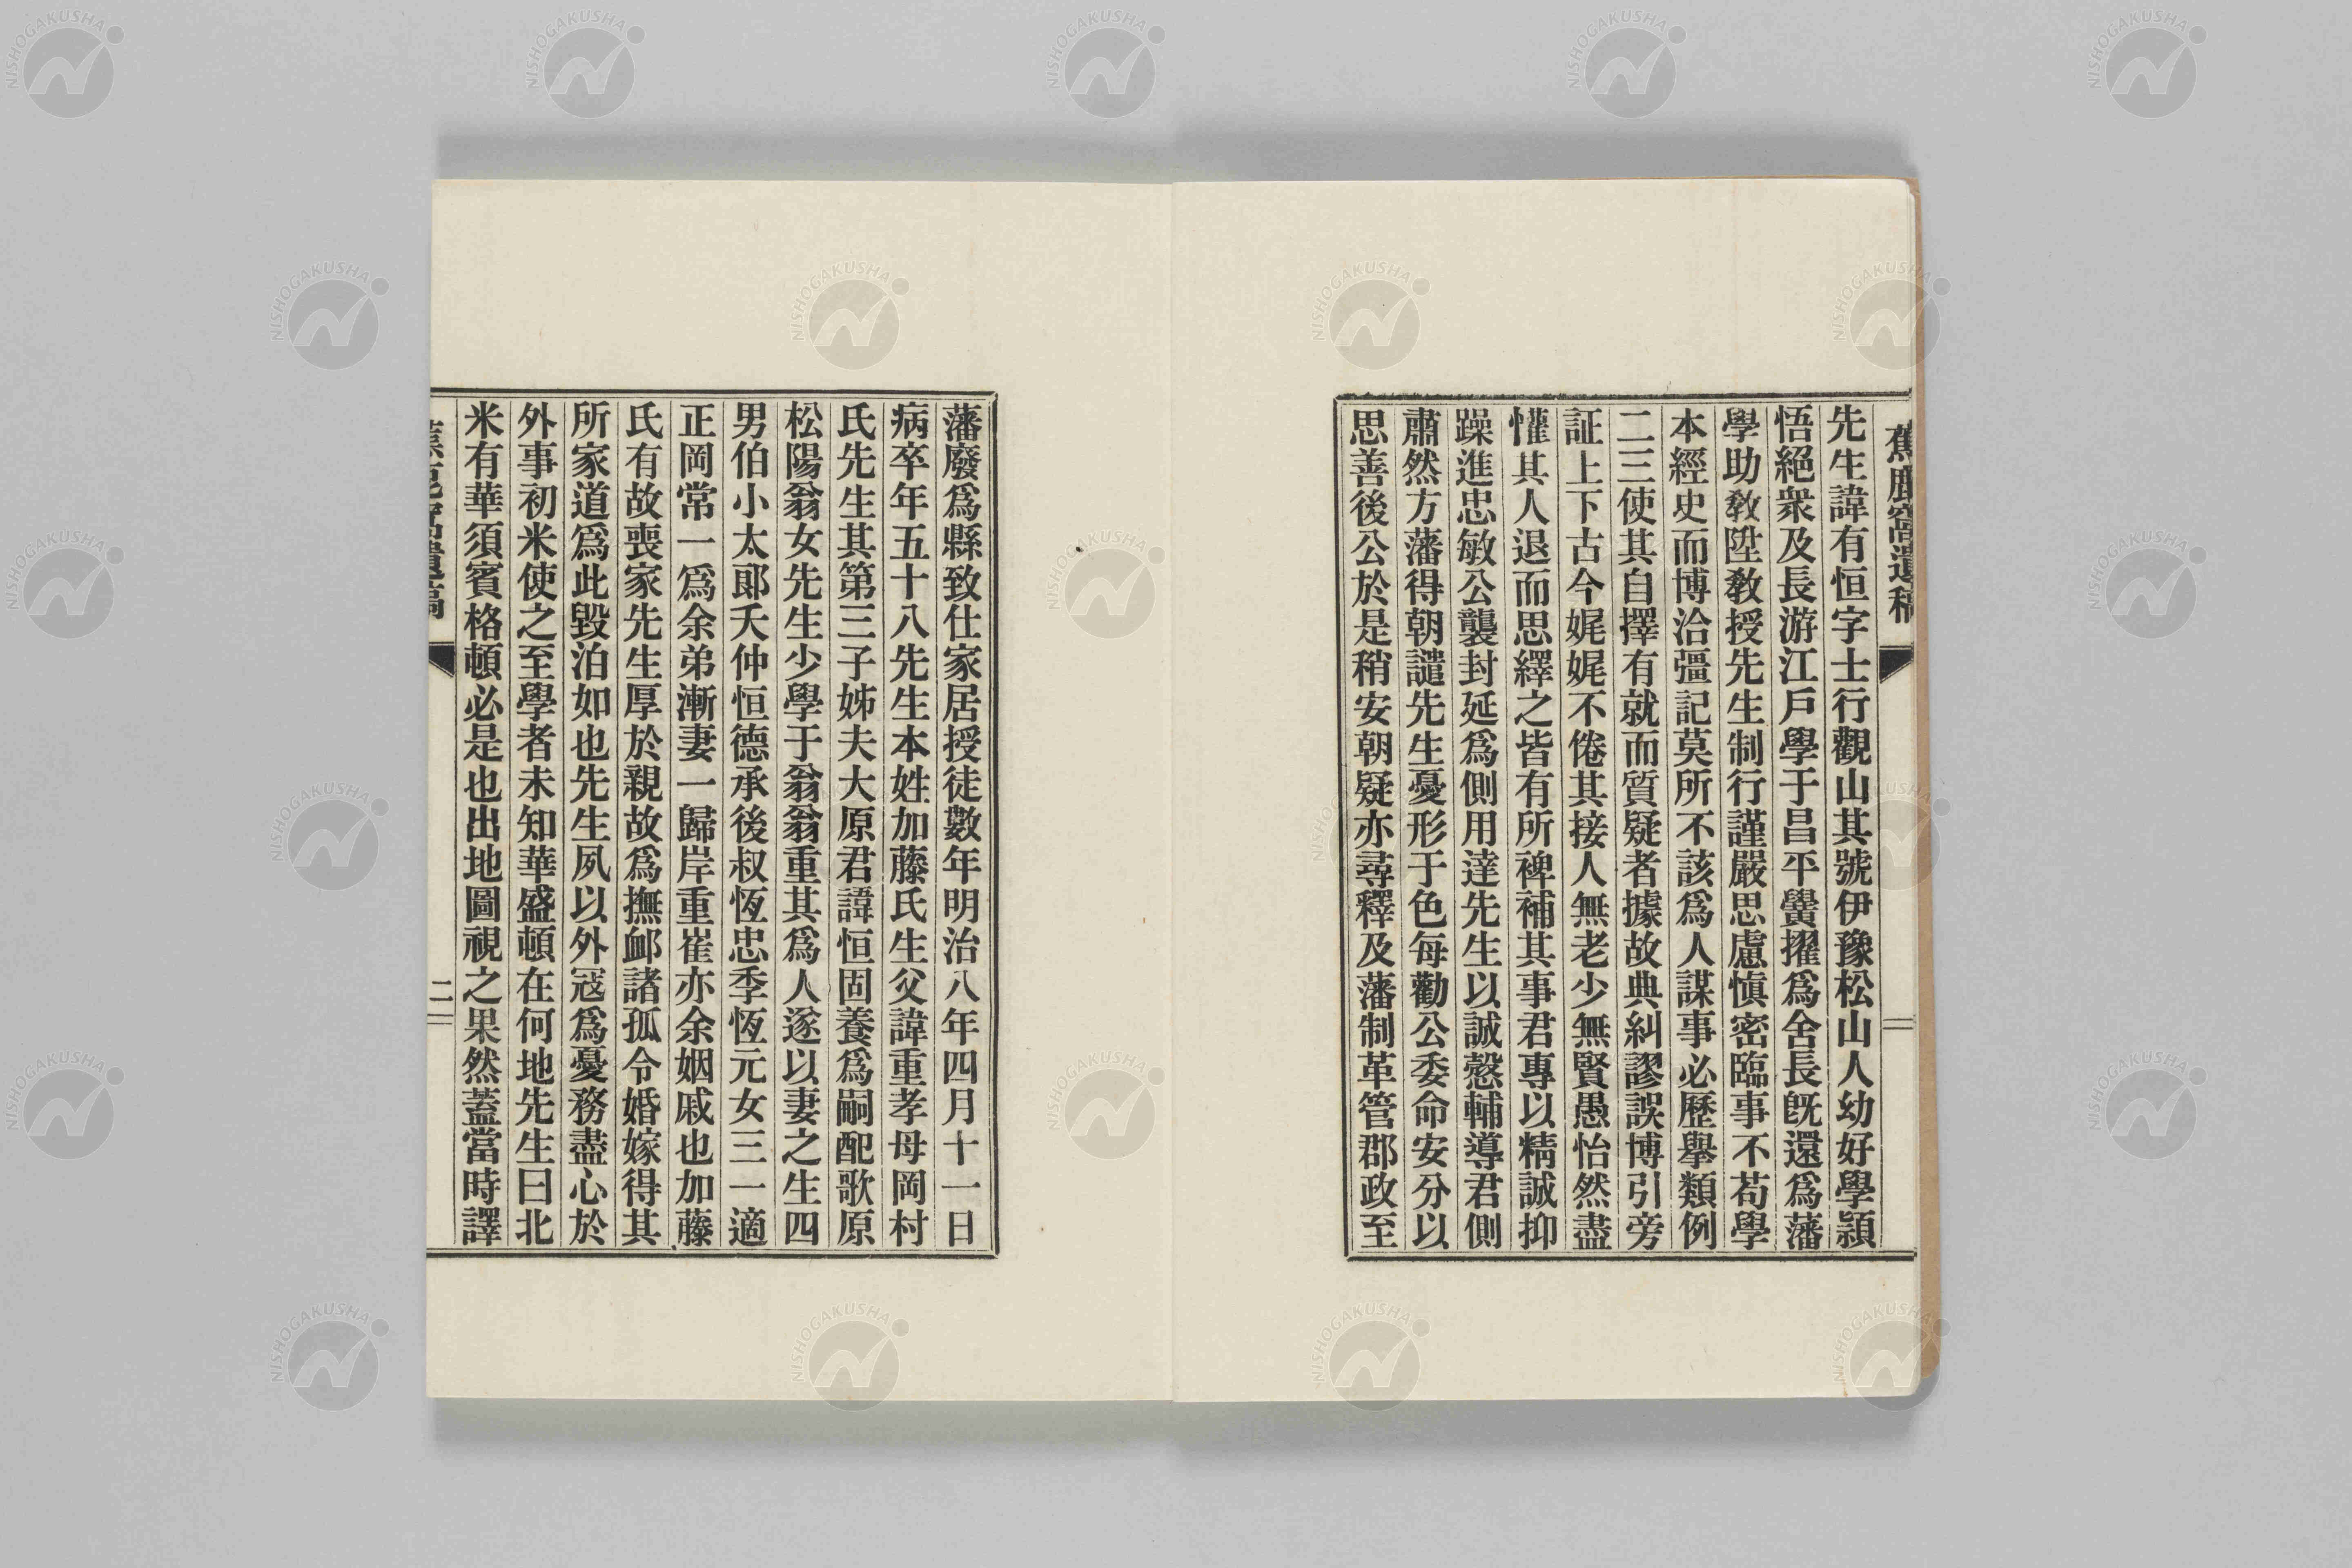 蕉鹿窩遺稿
先生諱有恒字士行觀山其號伊豫松山人幼好學頴
悟絕衆及長游江戶學于昌平黌擢爲舍長旣還爲藩
學助教陞教授先生制行謹嚴思慮愼密臨事不苟學
本經史而博洽彊記莫所不該爲人謀事必歷擧類例
二三使其自擇有就而質疑者據故典糾謬誤博引旁
証上下古今娓娓不倦其接人無老少無賢愚怡然盡
懽其人退而思繹之皆有所裨補其事君專以精誠抑
躁進忠敏公襲封延爲側用達先生以誠愨輔導君側
肅然方藩得朝譴先生憂形于色每勸公委命安分以
思善後公於是稍安朝疑亦尋釋及藩制革管郡政至
藩廢爲縣致仕家居授徒數年明治八年四月十一日
病卒年五十八先生本姓加藤氏生父諱重孝母岡村
氏先生其第三子姊夫大原君諱恒固養爲嗣配歌原
松陽翁女先生少學于翁翁重其爲人遂以妻之生四
男伯小太郎夭仲恒德承後叔恆忠季恆元女三一適
正岡常一爲余弟漸妻一歸岸重崔亦余姻戚也加藤
氏有故喪家先生厚於親故爲撫卹諸孤令婚嫁得其
所家道爲此毀泊如也先生夙以外寇爲憂務盡心於
外事初米使之至學者未知華盛頓在何地先生曰北
米有華須賓格頓必是也出地圖視之果然蓋當時譯
二
NISHOGAKUSHA